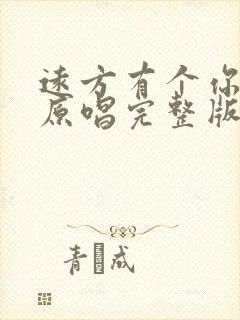 远方有个你
原唱完整版
青 成